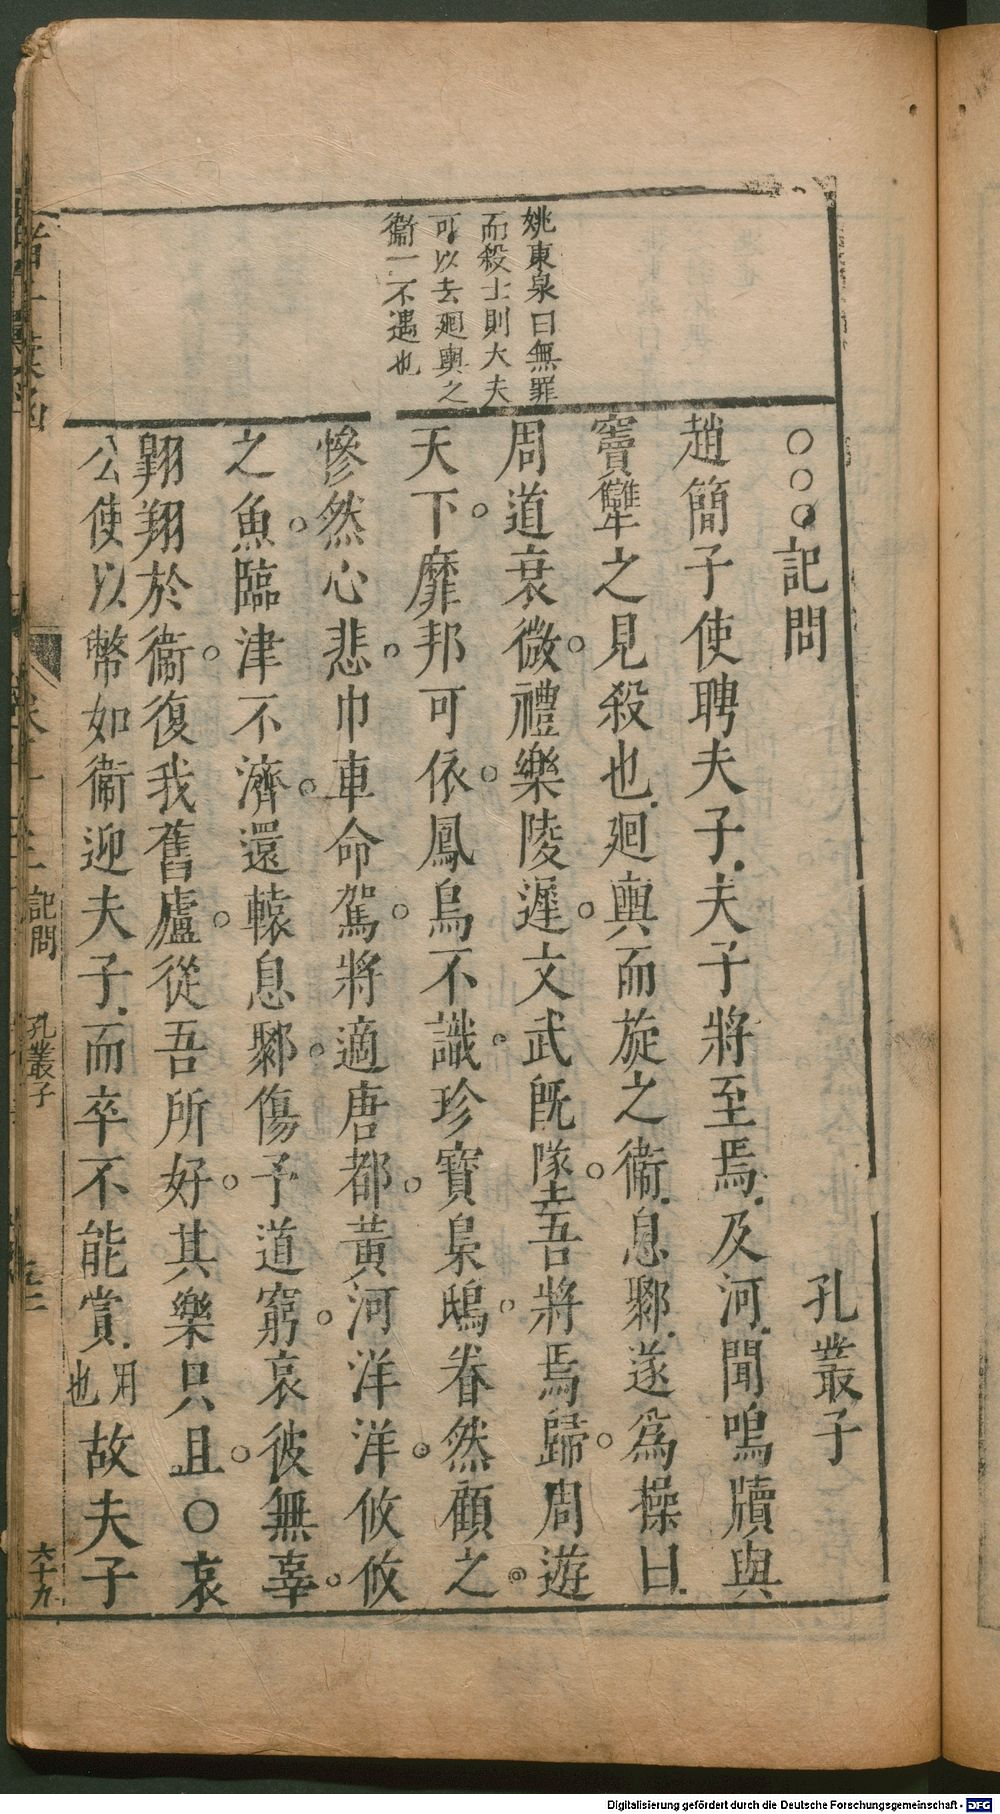 姚東泉曰無罪
而殺士則大夫
可以去廻輿之
衞一不遇也
○○○記問 孔叢子
趙簡子使聘夫子夫子將至焉及河聞鳴犢與
竇犨之見殺也廻輿而旋之衞息鄹遂爲操曰
周道衰微禮樂陵遲文武旣墜吾將焉歸周遊
天下靡邦可依鳳鳥不識珍寶梟鴟眷然顧之
慘然心悲巾車命駕將適唐都黃河洋洋攸攸
之魚臨津不濟還轅息鄹傷予道窮哀彼無辜
翺翔於衞復我舊廬從吾所好其樂只且○哀
公使以幣如衞迎夫子而卒不能賞用也故夫子
記問 孔叢子
六十九
Digitalisierung gefördert durch die Deutsche Forschungsgemeinschaft - DFG